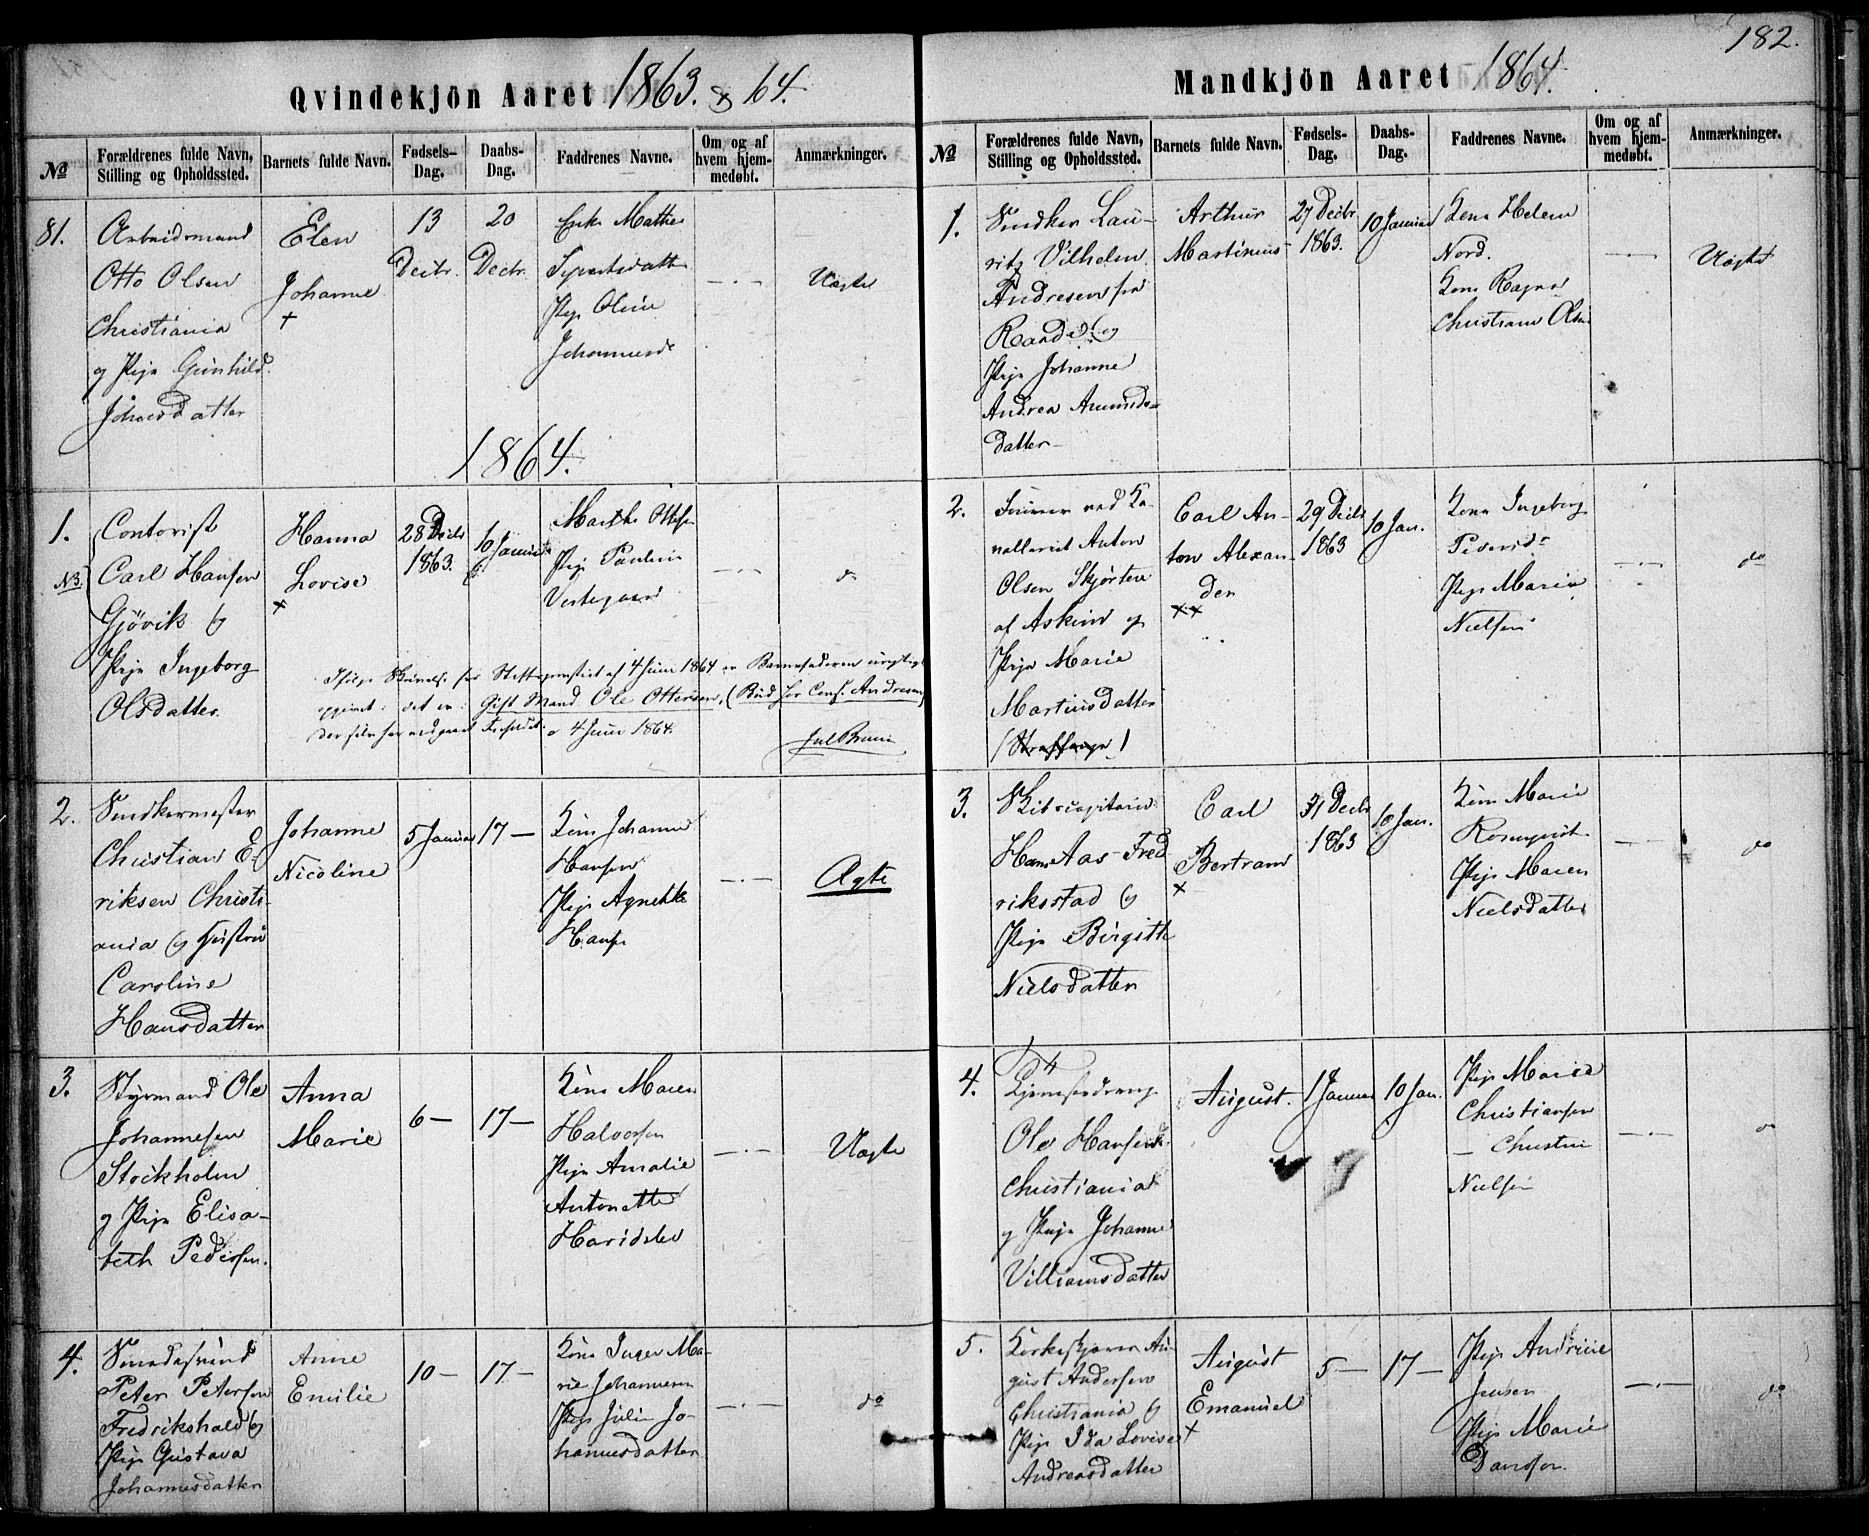 182.
Qvindekjön Aaret 1863. & 64.
№
Forældrenes fulde Navn, Stilling og Opholdssted.
Barnets fulde Navn.
Fødsels-Dag.
Daabs-Dag.
Faddrenes Navne.
Om og af hvem hjem-medøbt.
Anmærkninger.
81.
Arbeidsmand
Otto Olsen
Christiania
og Pige Gunhild
Johnsdatter
Elen
Johanne
+
13
Decbr.
20
Decbr.
Enke Mathea
Pige Oline
—·—
Uægte
1864.
1.
Contorist
Carl Hansen
Gjövik og
Pige Ingeborg
Olsdatter.
NB
Hanna
Lovise
+
28 Decbr
1863.
10 Januar
Marthe Ottesen
Pige Pauline
Vestegaard
—·—
do
Ifølge Skrivelse fra Stiftsprovstiet af 4 Juni 1864 er Barnefaderen urigtig
opgivet: det er: Gift Mand Ole Ottersen, (Bud hos Cons. Andresen)
4 Juni 1864.
Jul Bruun
2.
Snedkermester
Christian E-
riksen Christi-
ania og Hustru
Caroline
Hansdatter
Johanne
Nicoline
5 Januar
17 —
Kone Johanne
Hansen
Pige Agnethe
Hansen
—·—
Ægte
3.
Styrmand Ole
Johannesen
Stockholm
og Pige Elisa-
beth Pedersen.
Anna
Marie
6 —
17 —
Kone Maren
Halvorsen
Pige Amalie
Antonette
—·—
Uægte
4.
Smedesvend
Peter Petersen
Fredrikshald og
Pige Gustava
Johannesdatter
Anne
Emilie
10 —
17 —
Kone Inger Ma-
rie Johannesen
Pige Julie Jo-
hannesdatter
—·—
do
Mandkjön Aaret 1864.
№
Forældrenes fulde Navn, Stilling og Opholdssted.
Barnets fulde Navn.
Fødsels-Dag.
Daabs-Dag.
Faddrenes Navne.
Om og af hvem hjem-medøbt.
Anmærkninger.
1.
Snedker Lau-
ritz Vilhelm
Andresen fra
Randers og
Pige Johanne
Andrea Amunds-
datter
Arthur
Martinus
27 Decbr
1863.
10 Januar
Kone Helene
Nord.
Kone Ragna
Christiane Olsen
—·—
Uægte
2.
ved Ca-
valleriet Anton
Olsen Skjørten
af Askim og
Pige Marie
Martinsdatter
(Straffange)
Carl An-
ton Alexan
der
++
29 Decbr
1863
10 Jan.
Kone Ingeborg
Pige Marie
Nielsen
—·—
do
3.
Skibscapitain
Hans Aas Fred
rikstad og
Pige Birgithe
Nielsdatter
Carl
Bertram
+
31 Decbr
1863
10 Jan.
Kone Marie
Rosenqvist
Pige Maren
Nielsdatter
—·—
do
4.
Ole Hansen
Christiania
og Pige Johanne
Villiamsdatter
August.
1 Januar
10 Jan.
Pige Marie
Christiansen
— Christine
Nielsen
—·—
do
5.
Kirkestjener Au-
gust Andersen
Christiania og
Pige Ida Lovise
Andreasdatter
August
Emanuel
+
5 —
17 —
Pige Andrine
Jensen
Pige Marie
Danssen
—·—
do